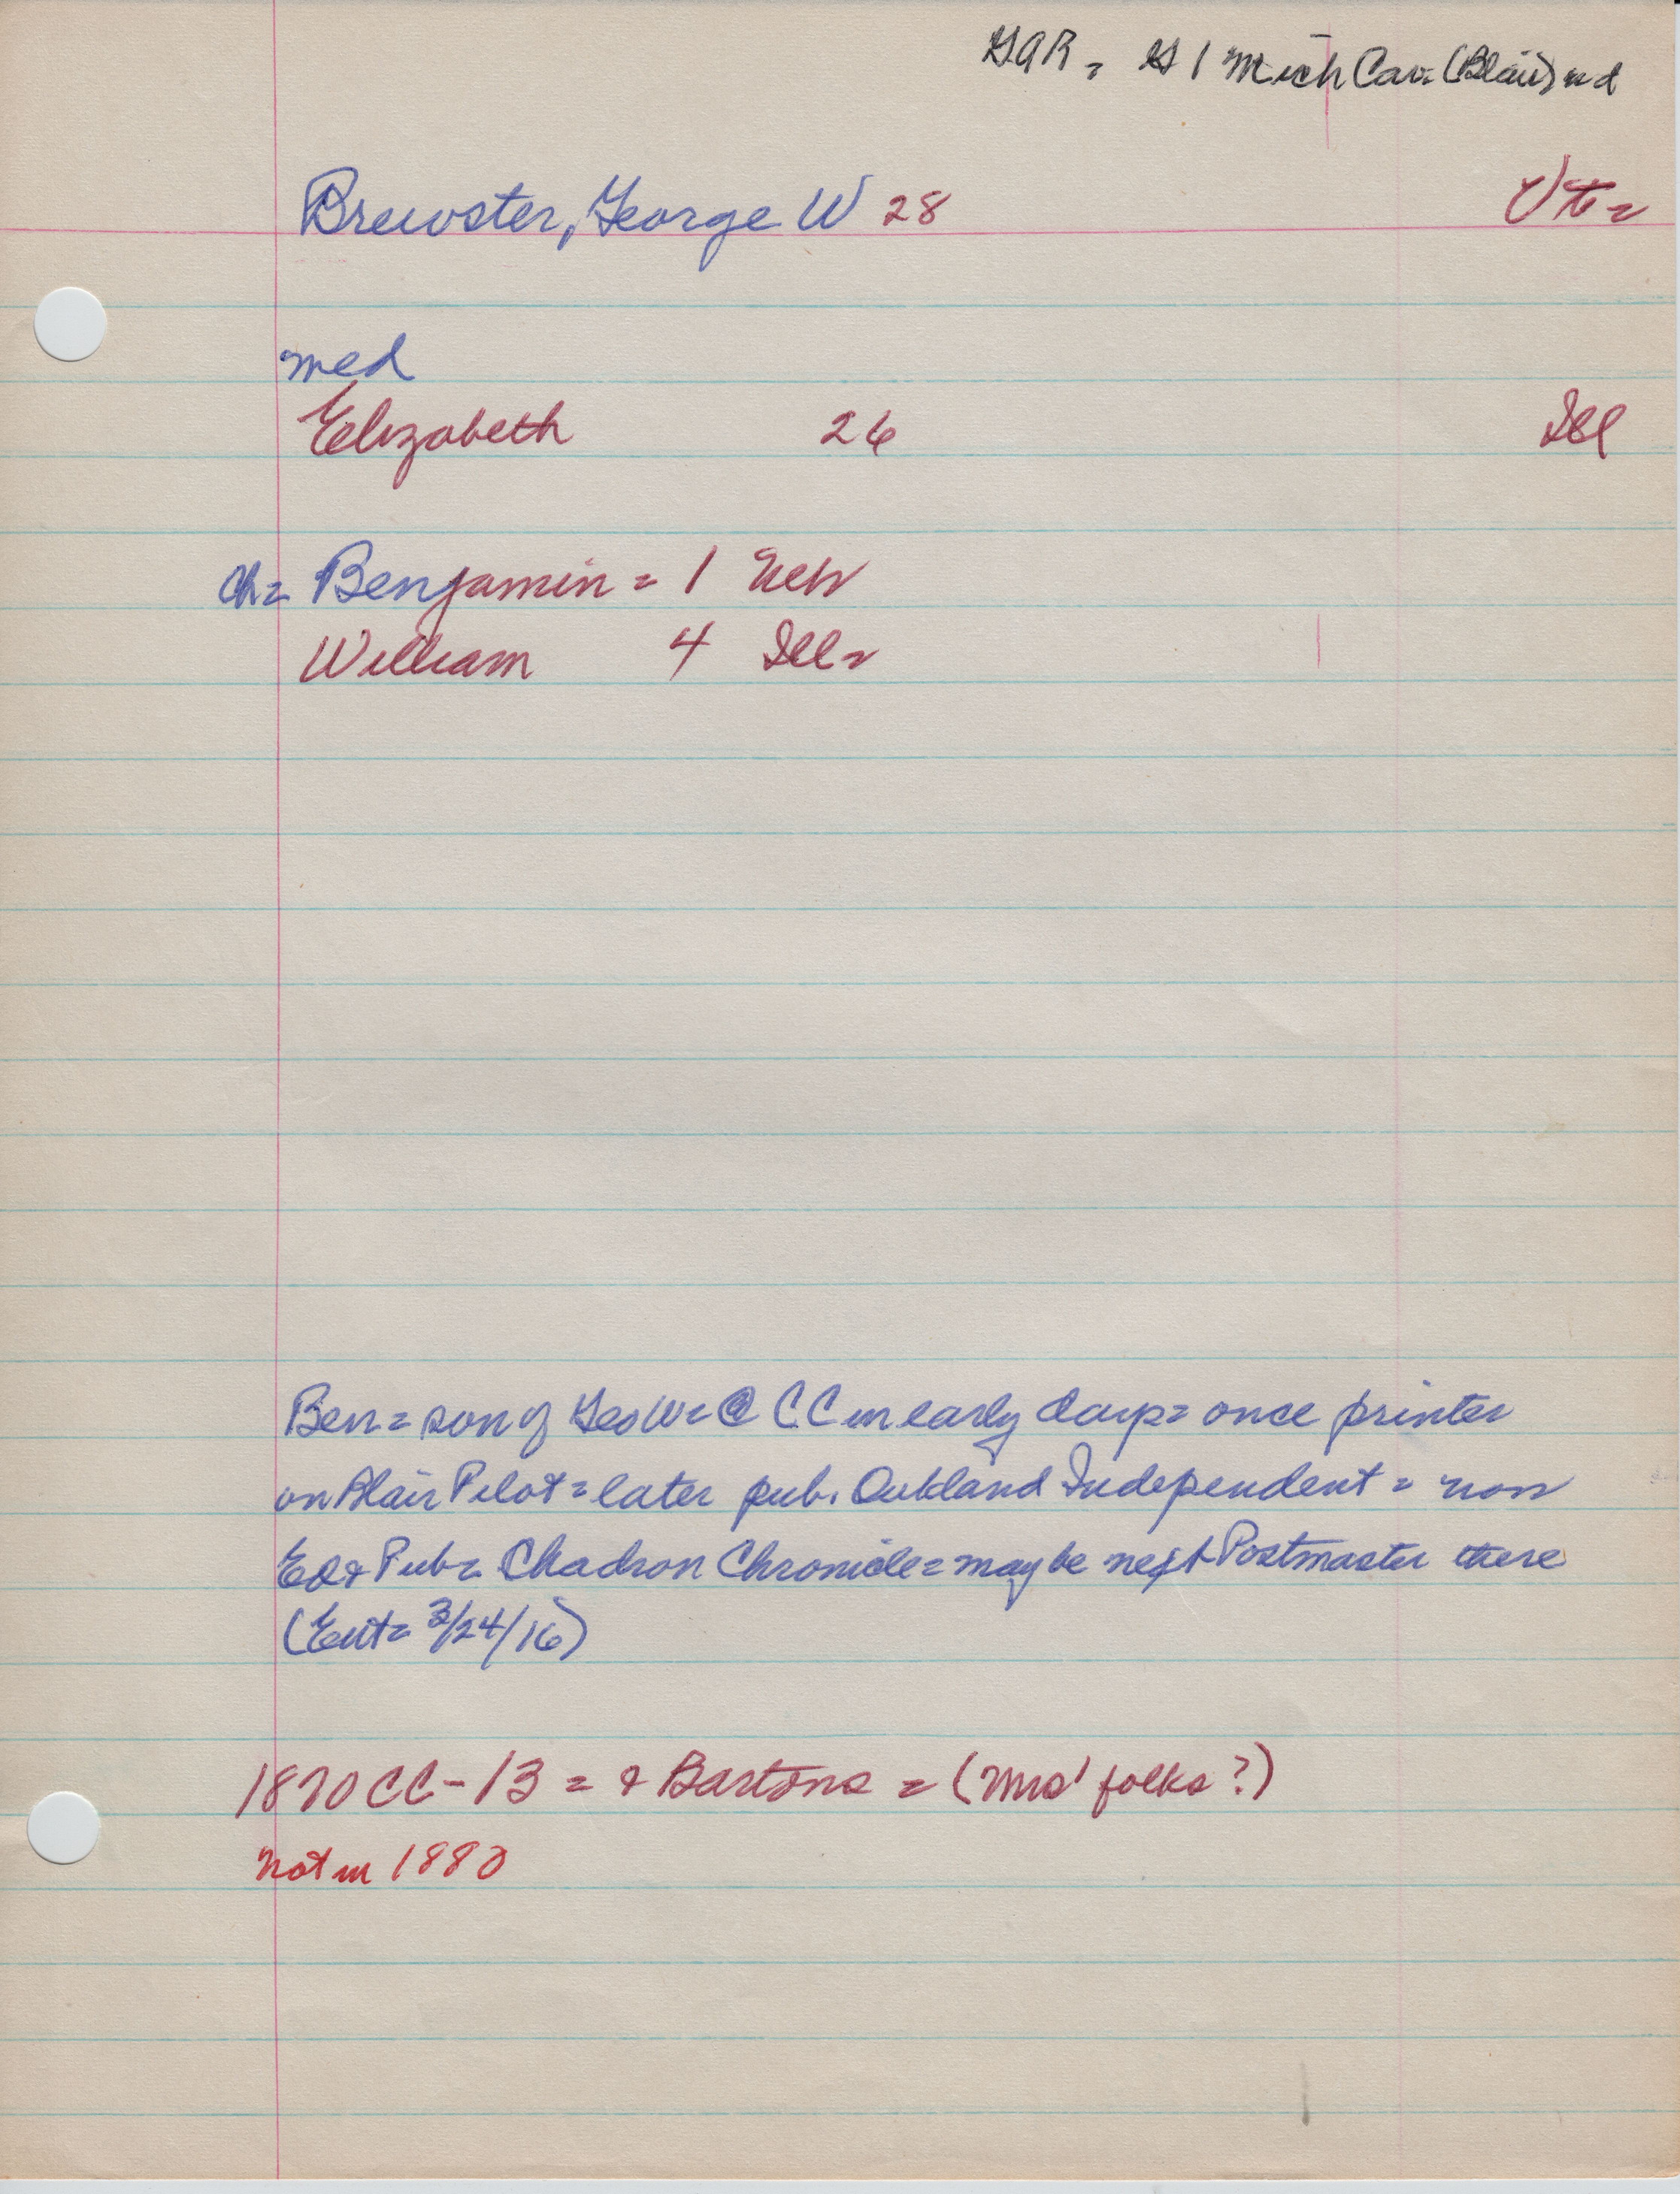 GAR = G 1 Mich Cav. (Blair) nd
Brewster, George W 28 Vt=
med
Elizabeth 26 Ill
Ch= Benjamin = 1 Neb
William 4 Ill=
Ben = son of Geo W= @ CC in early days= once printer
on Blair Pilot = later pub. Oakland Independent = now
Ed & Pub= Chadron Chronicle = may be next Postmaster there
(Ent= 3/24/16)
1870 CC - 13 = & Bartons = (Mrs' folks?)
Not in 1880